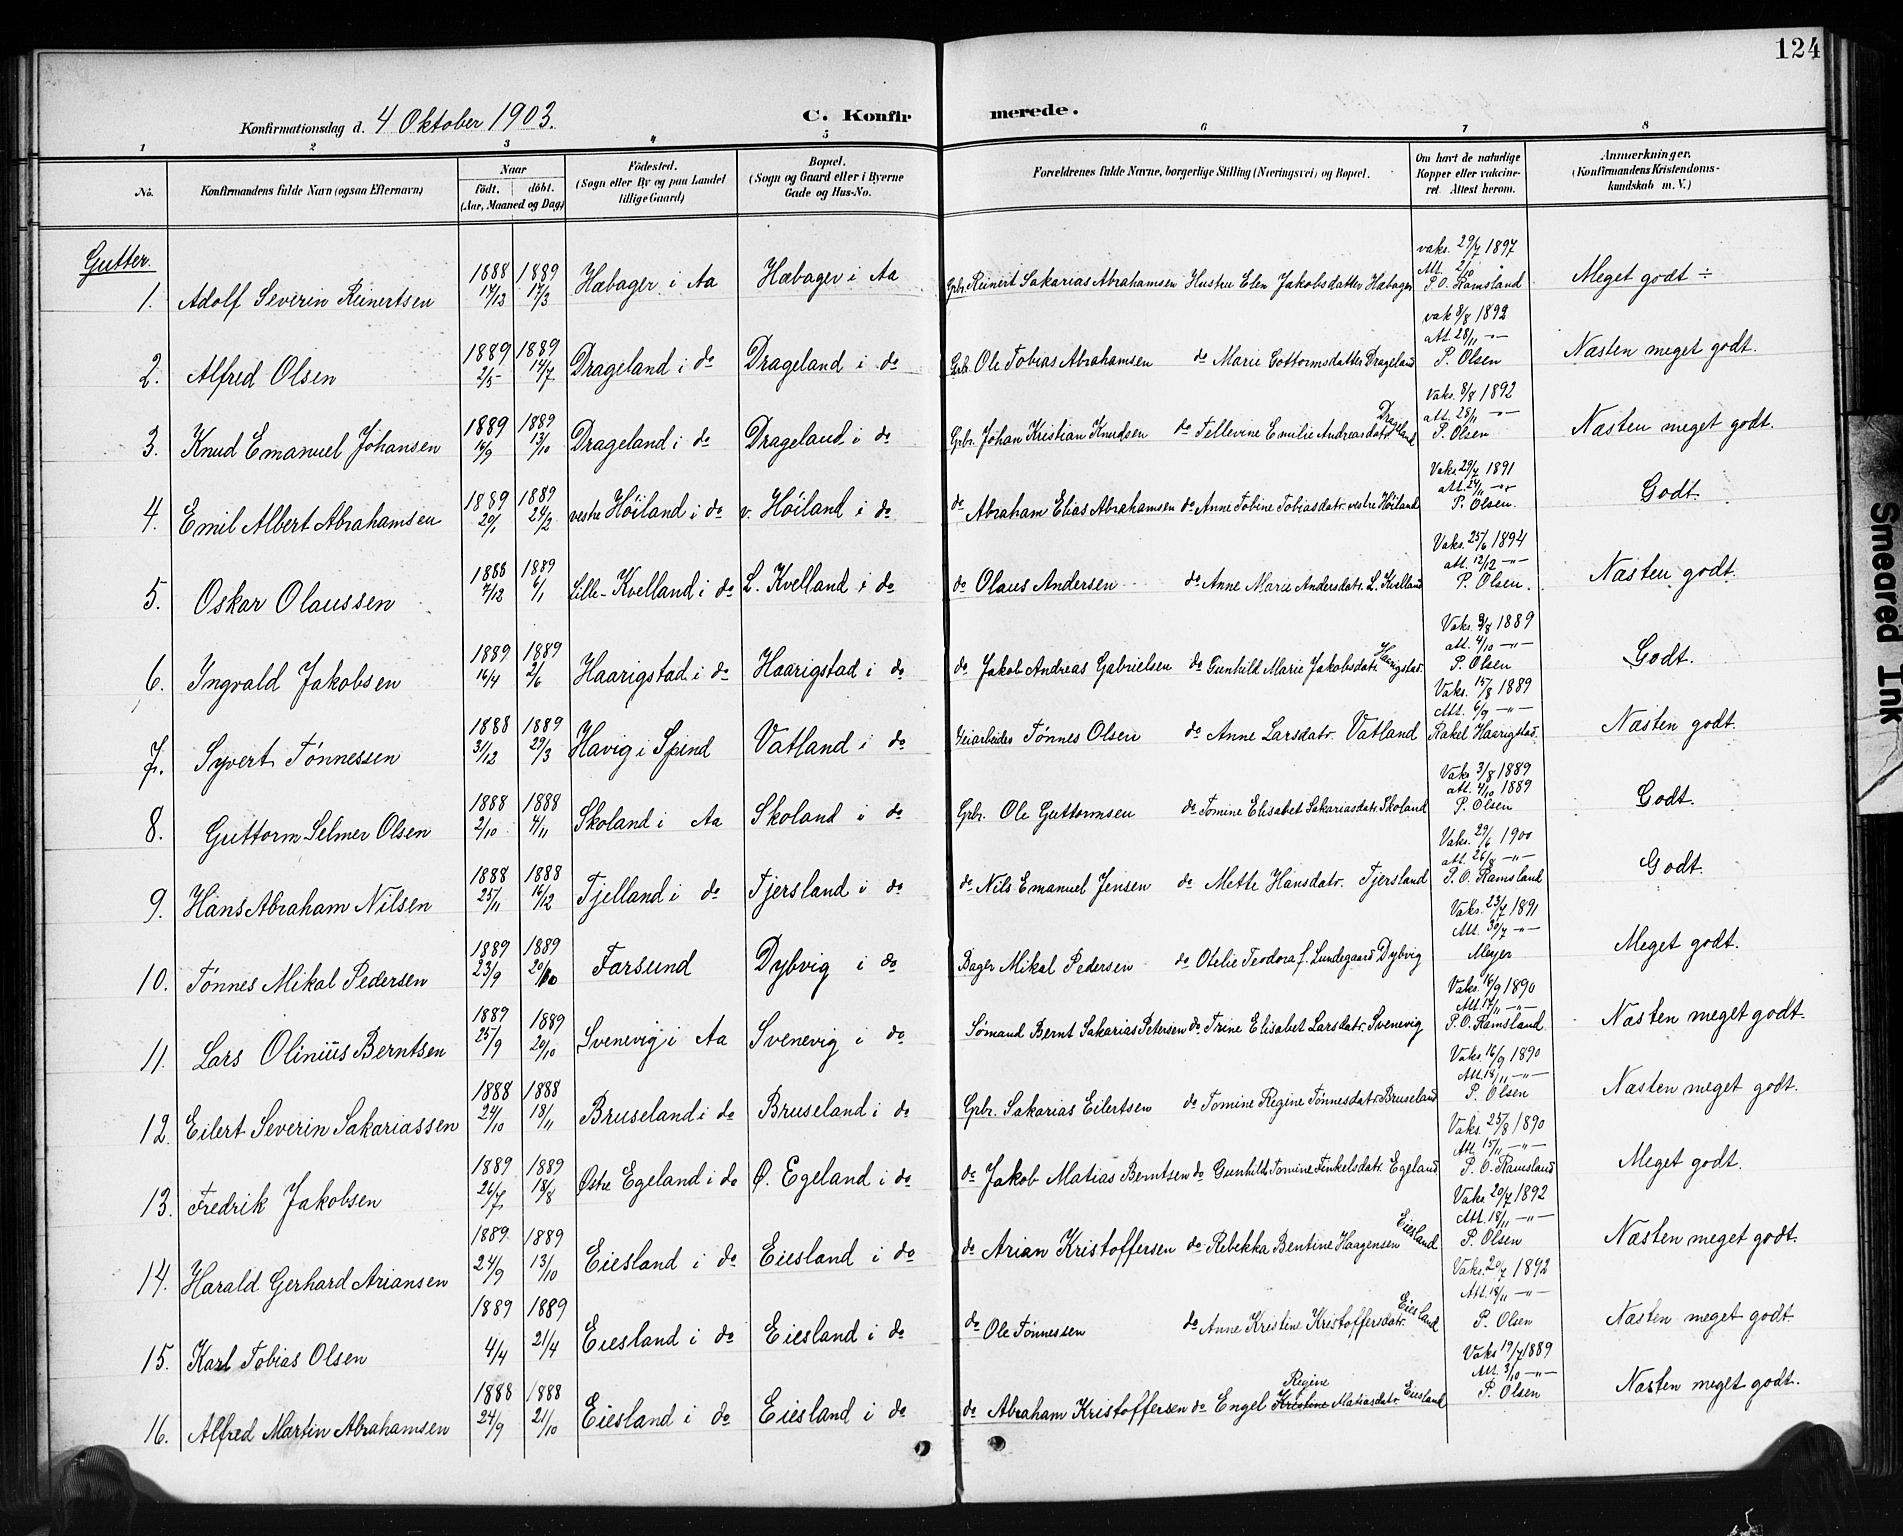 124
Konfirmationsdag d. 4 Oktober 1903.
C. Konfirmerede.
1 2 3 4 5 6 7 8
No. | Konfirmandens fulde Navn (ogsaa Efternavn) | Naar født. døbt. (Aar, Maaned og Dag) | Fødested. (Sogn eller By og paa Landet tillige Gaard) | Bopæl. (Sogn og Gaard eller i Byerne Gade og Hus-No. | Forældrenes fulde Navne, borgerlige Stilling (Næringsvei) og Bopæl. | Om havt de naturlige Kopper eller vakcineret. Attest herom. | Anmærkninger. (Konfirmandens Kristendomskundskab m. V.)
Gutter.
1. Adolf Severin Reinertsen | 1888 17/12 | 1889 17/3 | Hæbager i Aa | Hæbager i Aa | Gbr. Reinert Sakarias Abrahamsen Hustru Elen Jakobsdatter Hæbager | vaks. 29/7 1897 Att. P. O. Ramsland | Meget godt ÷
2. Alfred Olsen | 1889 2/5 | 1889 14/7 | Drageland i do | Drageland i do | Grb. Ole Tobias Abrahamsen do Marie Gottormsdatter Drageland | vak 8/8 1892 att. 28/11 -"- P. Olsen | Næsten meget godt.
3. Knud Emanuel Johansen | 1889 16/9 | 1889 13/10 | Drageland i do | Drageland i do | Grbr. Johan Kristian Knudsen do Tellevine Emilie Andreasdatr Drageland | Vaks. 8/8 1892 att. 28/11 -"- P. Olsen | Næsten meget godt.
4. Emil Albert Abrahamsen | 1889 20/1 | 1889 24/2 | vestre Høiland i do | v. Høiland i do | do Abraham Elias Abrahamsen do Anne Tobine Tobiasdatr. vestre Høiland | Vaks 29/7 1891 att. 24/11 -"- P. Olsen. | Godt.
5. Oskar Olaussen | 1888 7/12 | 1889 6/1 | Lille-Kvelland i do | L. Kvelland i do | do Olaus Andersen do Anne Marie Andersdatr. L. Kvelland | Vaks. 25/6 1894 att. 12/12 -"- P. Olsen. | Næsten godt.
6. Ingvald Jakobsen | 1889 16/4 | 1889 2/6 | Haarigstad i do | Haarigstad i do | do Jakob Andreas Gabrielsen do Gunhild Marie Jakobsdatr. Haarigstad | Vaks. 3/8 1889 att. 4/10 -"- P. Olsen | Godt.
7. Syvert Tønnessen | 1888 31/12 | 1889 29/3 | Havig i Spind | Vatland i do | Veiarbeider Tønnes Olsen do Anne Larsdatr. Vatland | Vaks. 15/8 1889 Att. 6/9 -"- Rakel Haarigstad. | Næsten godt.
8. Guttorm Selmer Olsen | 1888 2/10 | 1888 4/11 | Skoland i Aa | Skoland i do | Grbr. Ole Guttormsen do Tomine Elisabet Sakariasdatr. Skoland | Vaks 3/8 1889 att. 4/10 1889 P. Olsen | Godt.
9. Hans Abraham Nilsen | 1888 25/11 | 1888 16/12 | Tjelland i do | Tjersland i do | do Nils Emanuel Jensen do Mette Hansdatr. Tjersland | Vaks. 29/6 1900 att. 26/8 -"- P. O. Ramsland | Godt.
10. Tønnes Mikal Pedersen | 1889 23/9 | 1889 20/10 | Farsund | Dybvig i do | Bager Mikal Pedersen do Otelie Teodora f. Lundegaard Dybvig | Vaks. 23/7 1891 Att. 30/7 -"- Meyer | Meget godt.
11. Lars Olinius Berntsen | 1889 25/9 | 1889 20/10 | Svenevig i Aa | Svenevig i do | Sømand Bernt Sakarias Petersen do Trine Elisabet Larsdatr. Svenevig | Vaks. 16/9 1890 Att. 17/11 -"- P. O. Ramsland. | Næsten meget godt.
12. Eilert Severin Sakariassen | 1888 24/10 | 1888 18/11 | Bruseland i do | Bruseland i do | Grbr. Sakarias Eilertsen do Tomine Regine Tønnesdatr. Bruseland | Vaks. 16/9 1890 Att. 18/11 -"- P. Olsen | Næsten meget godt.
13. Fredrik Jakobsen | 1889 26/7 | 1889 18/8 | Østre Egeland i do | Ø. Egeland i do | do Jakob Matias Berntsen do Gunhild Tomine Tinkelsdatr. Egeland | Vaks. 25/8 1890 Att. 15/11 -"- P. O. Ramsland | Meget godt.
14. Harald Gerhard Ariansen | 1889 24/9 | 1889 13/10 | Eiesland i do | Eiesland i do | do Arian Kristoffersen do Rebekka Bentine Haagensen Eiesland | Vaks 20/7 1892 Att. 18/11 -"- P. Olsen | Næsten meget godt.
15. Karl Tobias Olsen | 1889 4/4 | 1889 21/4 | Eiesland i do | Eiesland i do | do Ole Tønnessen do Anne Kristine Kristoffersdatr. Eiesland | Vaks. 20/7 1892 Att. 18/11 -"- P. Olsen | Næsten meget godt.
16. Alfred Martin Abrahamsen | 1888 24/9 | 1888 21/10 | Eiesland i do | Eiesland i do | do Abraham Kristoffersen do Engel Kristine Regine Matiasdatr. Eiesland | Vaks 19/7 1889 Att. 3/10 -"- P. Olsen | Næsten meget godt.
Smeared Ink